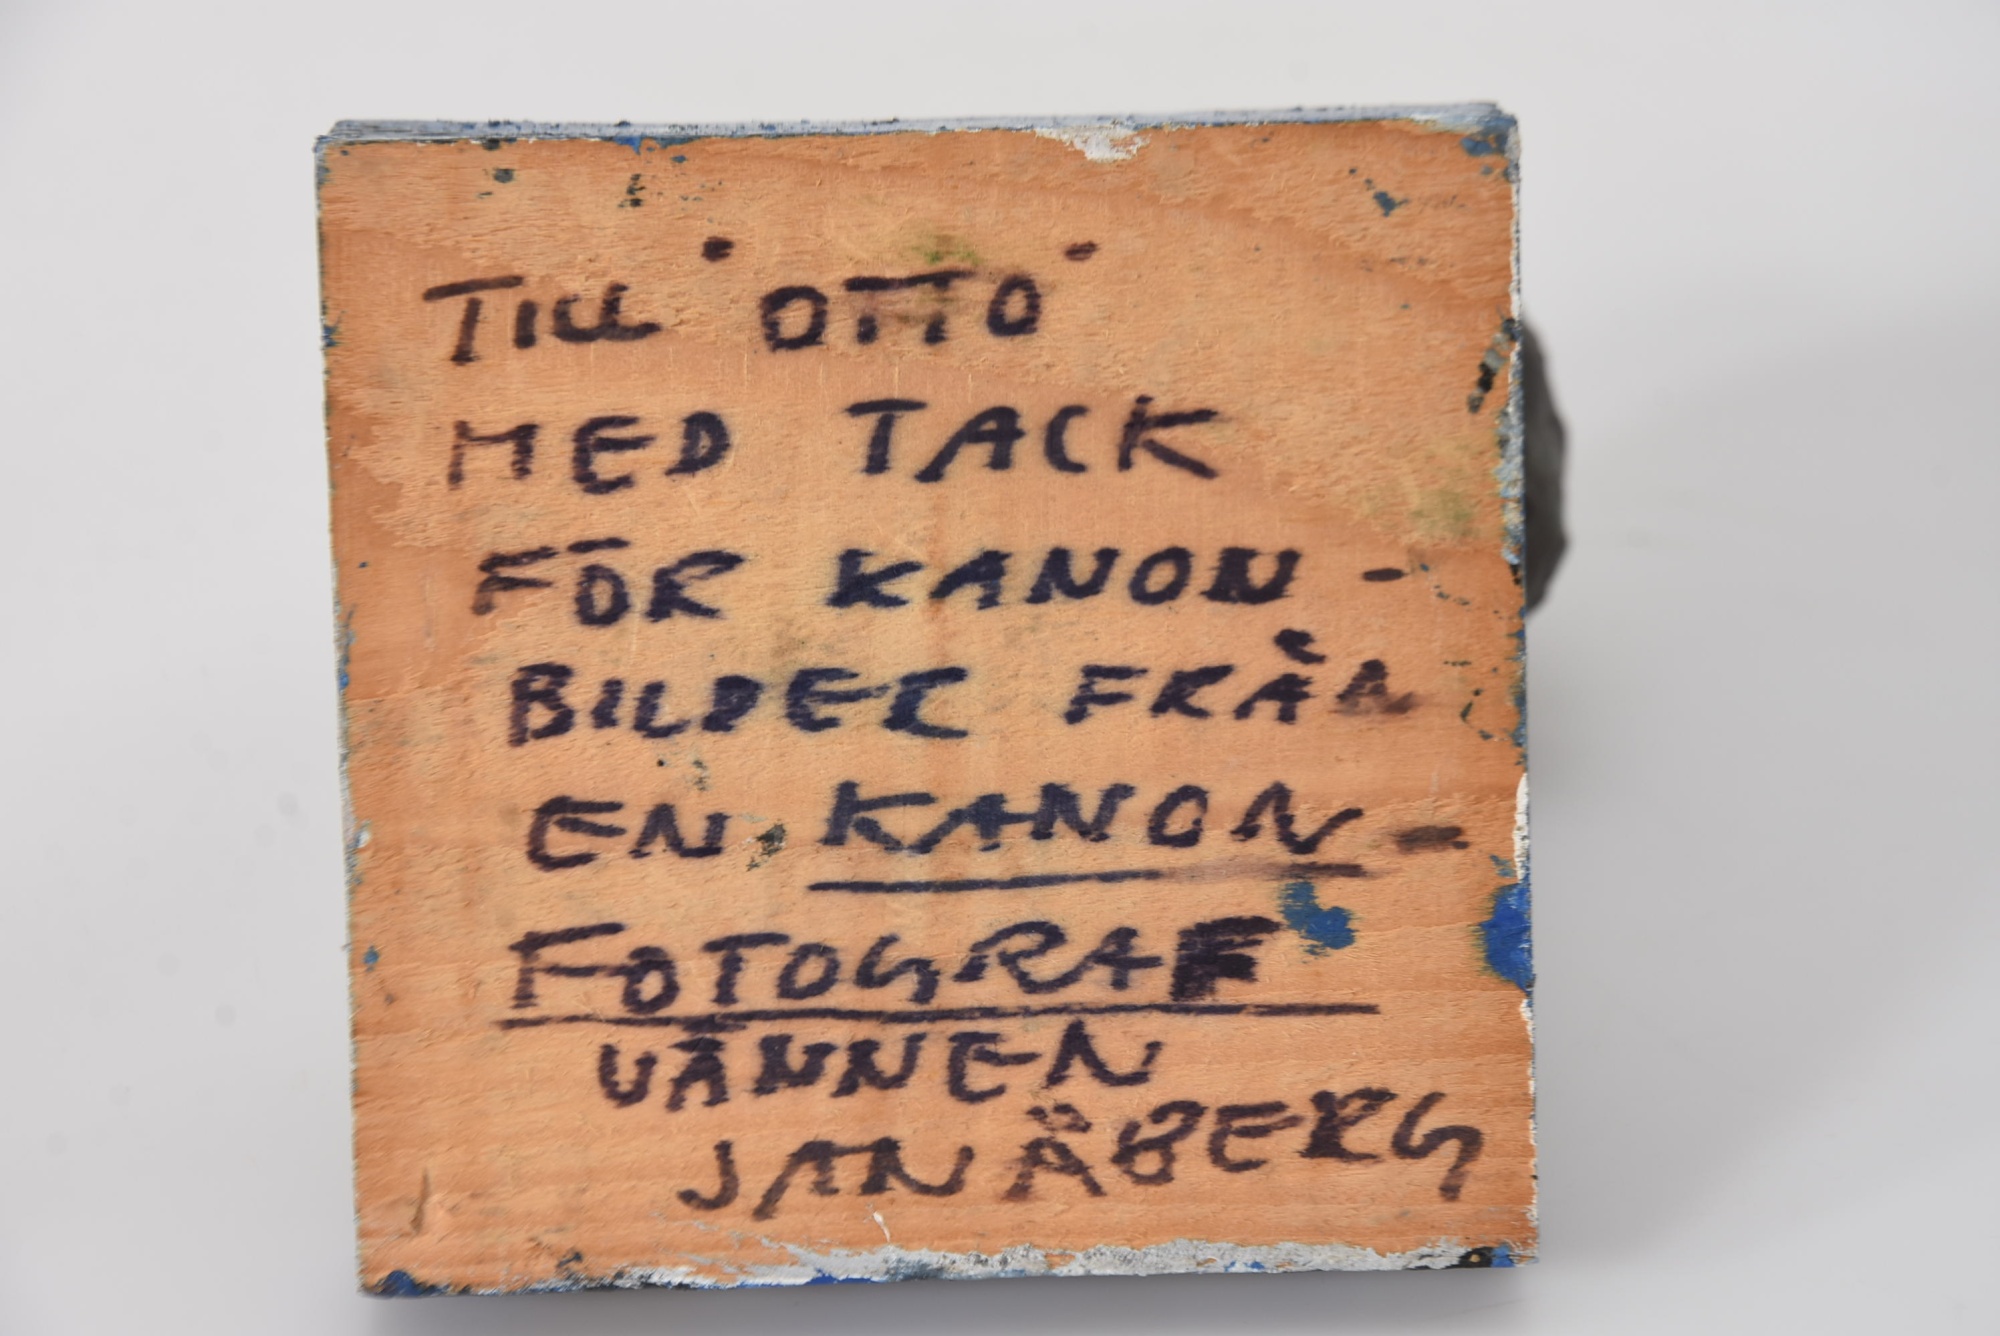 TILL "OTTO"
MED TACK
FÖR KANON -
BILDER FRÅN
EN KANON -
FOTOGRAF
VÄNNEN
JAN ÅBERG